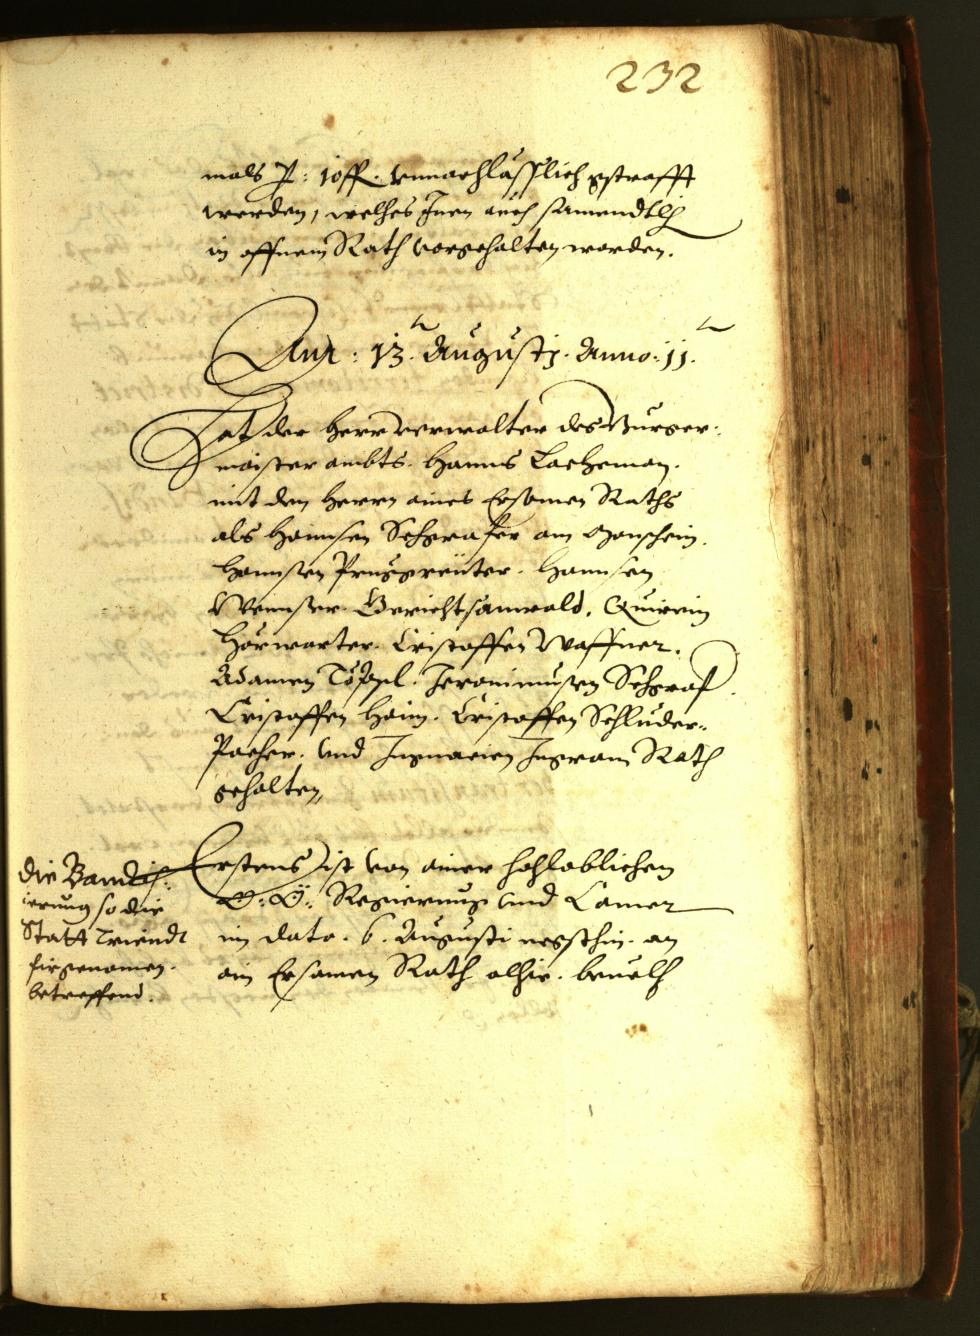 232
mals P: 10 fl. vnnachlässlich gstrafft
werden, welches Inen auch samendtlich
in offnem Rath vorgehalten worden.
Am: 13. Augustj. Anno: 11.
Hat der Herr verwalter des Burger-
maister ambts. Hanns Lacheman.
mit den Herrn aines Ersamen Raths
als Hannsen Schgrafer am
Hannsen Pruggreüter. Hannsen
Wennser Gerichtsanwald, Quirein
Hörwarter. Cristoffen Waffner.
Adamen Töpsl. Jeronimusen Schgraf
Cristoffen Haim. Cristoffen Schluder-
Pacher. vnd Ingnacien Ingram Rath
gehalten,
Die Bandisi-
ierung so die
Statt Triendt
firgenomen.
betreffend.
Erstens ist von ainer hochloblichen
O: Ö: Regierung vnd Camer
im dato. 6. Augusti negsthin. an
ain Ersamen Rath alhie. beuelch